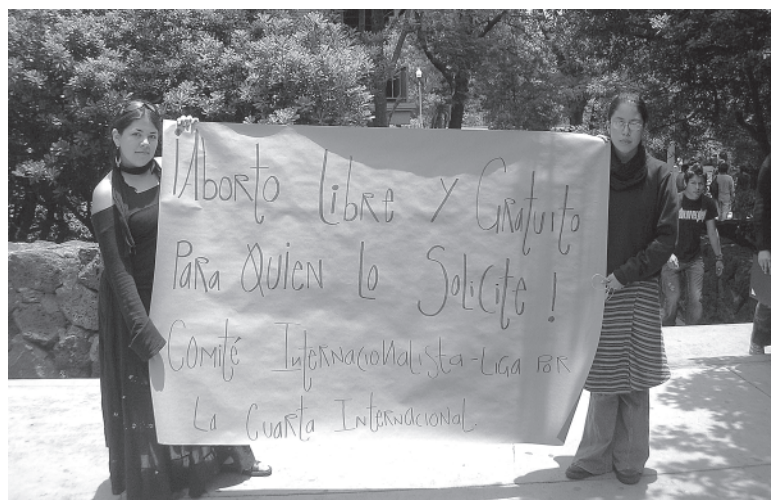 ¡Aborto Libre y Gratuito
Para Quien Lo Solicite!
Comité Internacionalista-Liga por
La Cuarta Internacional